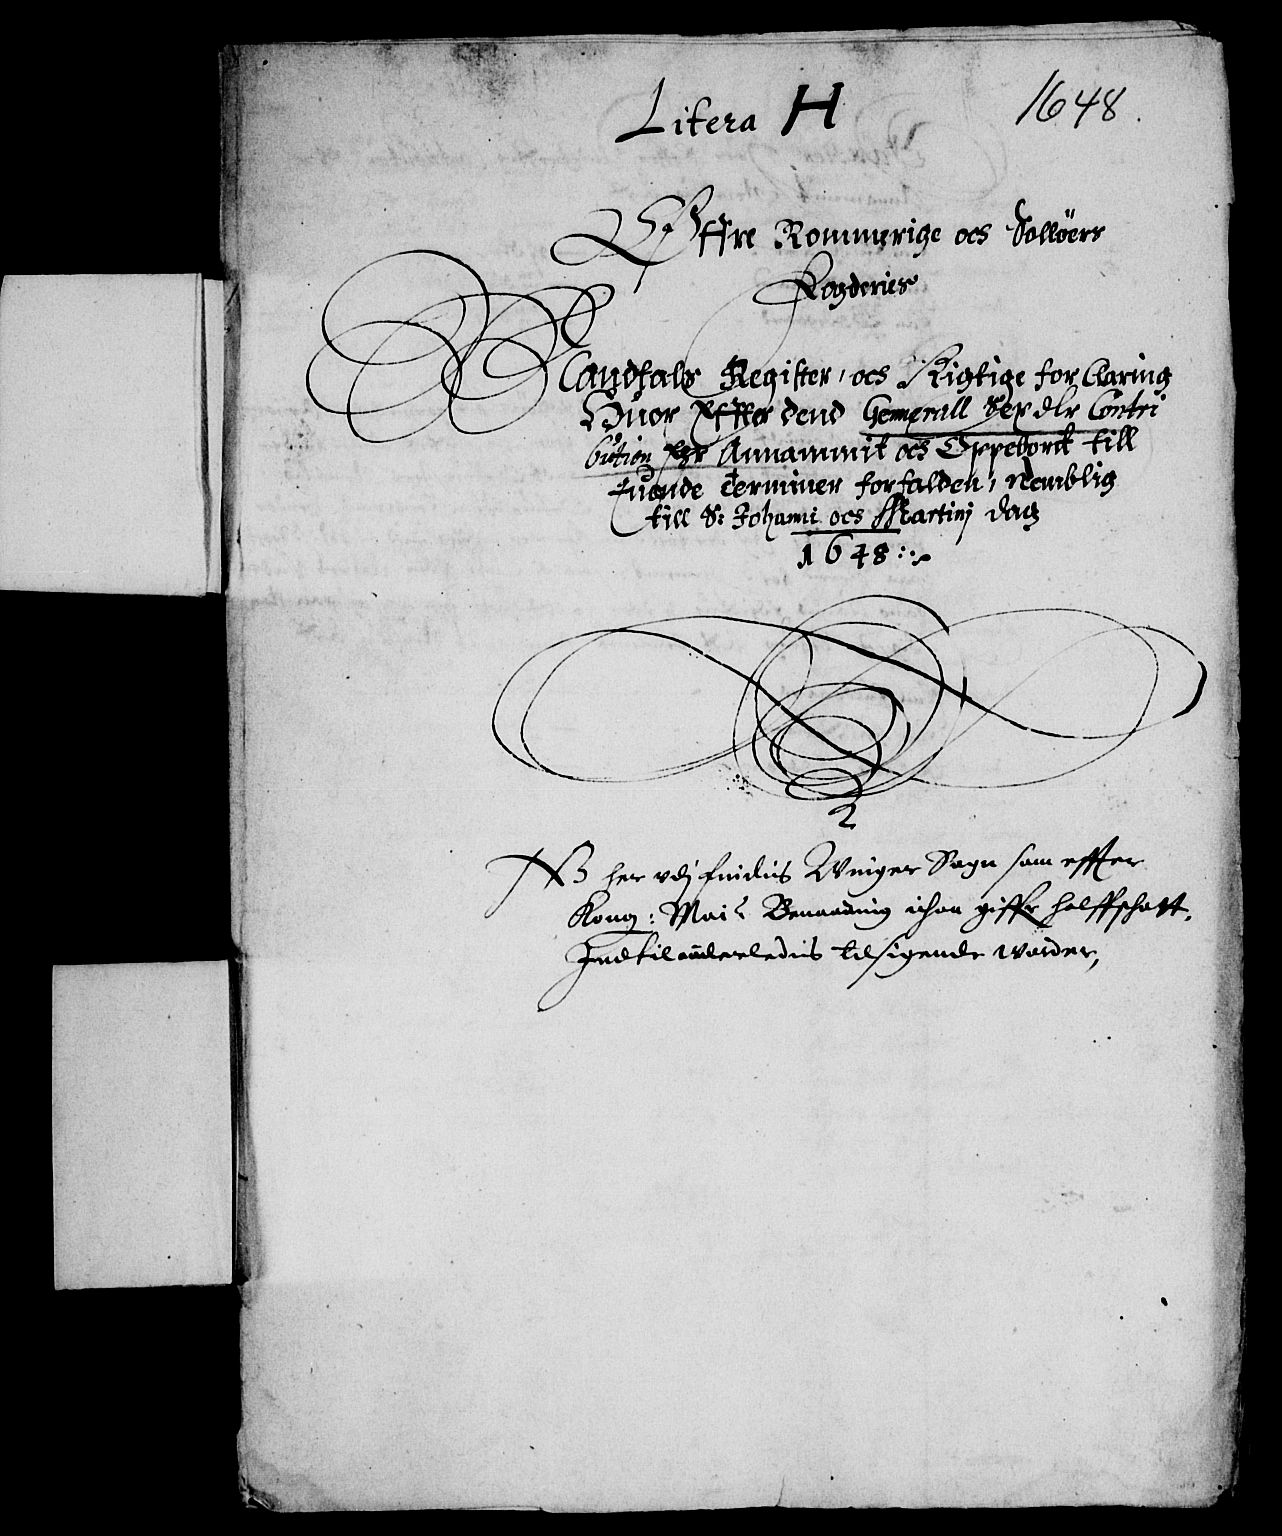 Litera H 1648.
Øffre Rommerige och Solløers
Fogderies
Mandtals Register, och Rigtige forClaring
Huor Effter dend Generall Sex dlr Contri
bution Ehr Annammit och Oppeborit till
tuende Terminer forfalden, Nemblig
till S: Johanni och Martinj dag
1648
NB her vdj findis Winger Sogn som effter
Kong: Mai: Benaading ichon giffr halffschatt,
Indtil anderledis tilsigendis worder,